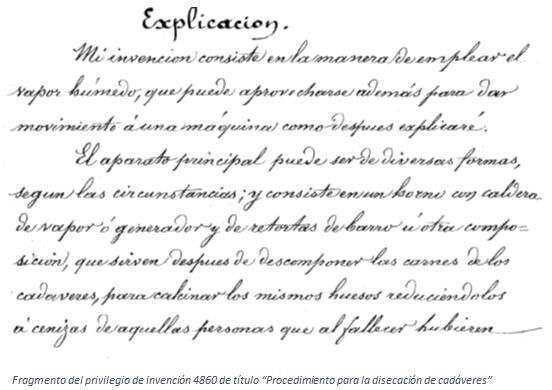 Explicacion.
Mi invencion consiste en la manera de emplear el
vapor húmedo, que puede aprovecharse además para dar
movimiento á una máquina como despues explicaré.
El aparato principal puede ser de diversas formas,
segun las circunstancias; y consiste en un horno con caldera
de vapor ó generador y de retortas de barro ú otra compo-
sicion, que sirven despues de descomponer las carnes de los
cadaveres, para calcinar los mismos huesos reduciéndolos
á cenizas de aquellas personas que al fallecer hubieren
Fragmento del privilegio de invención 4860 de título "Procedimiento para la disecación de cadáveres"